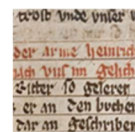 trost vnde vnser
der arme heinrich
sich vns im gelich
Ritter so gelerer
er an den buchen
dar an geschriben